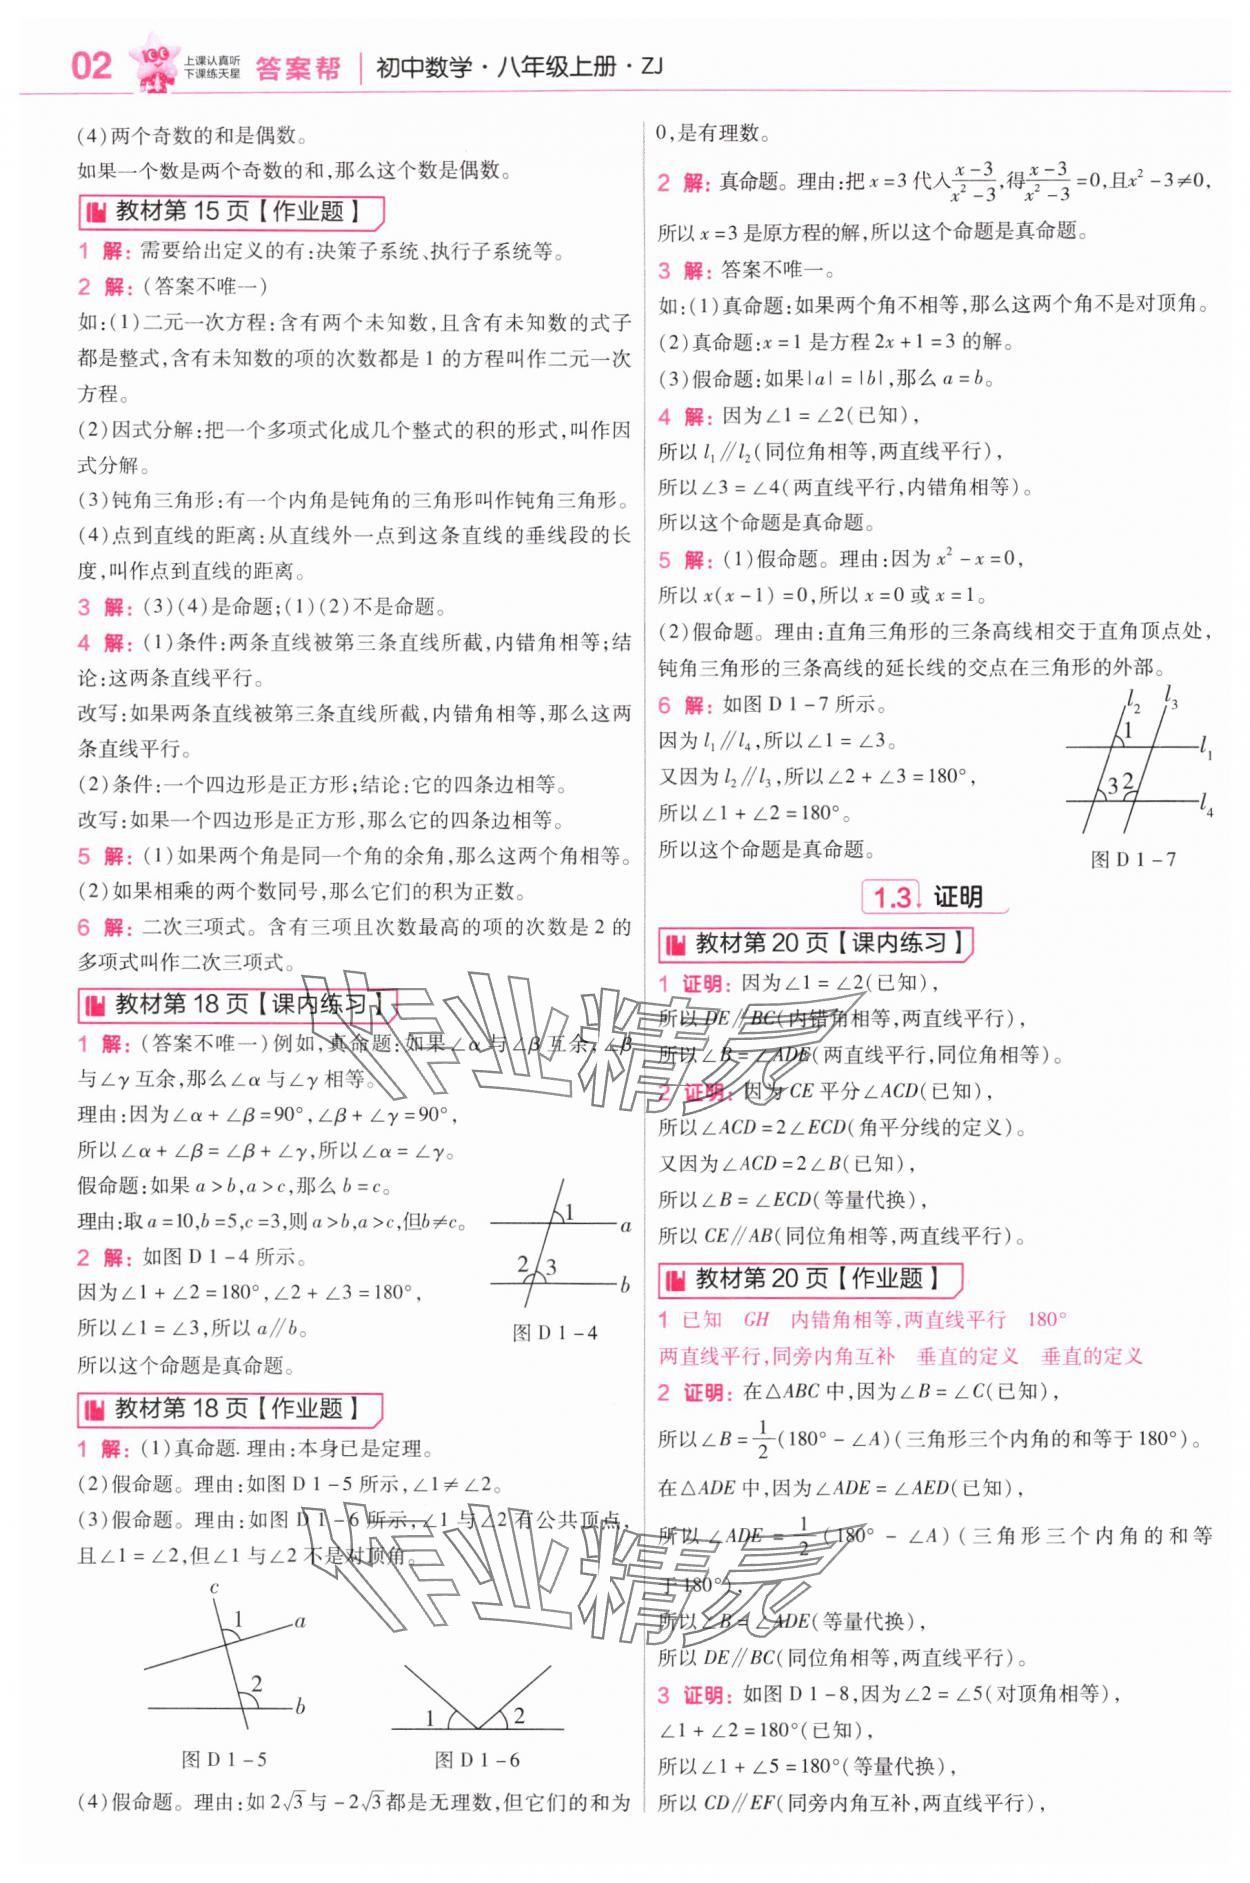 02 上课认真听 下课练天星 答案帮 初中数学·八年级上册·ZJ
(4)两个奇数的和是偶数。
如果一个数是两个奇数的和,那么这个数是偶数。
教材第 15 页【作业题】
1 解:需要给出定义的有:决策子系统、执行子系统等。
2 解:(答案不唯一)
如:(1)二元一次方程:含有两个未知数,且含有未知数的式子
都是整式,含有未知数的项的次数都是 1 的方程叫作二元一次
方程。
(2)因式分解:把一个多项式化成几个整式的积的形式,叫作因
式分解。
(3)钝角三角形:有一个内角是钝角的三角形叫作钝角三角形。
(4)点到直线的距离:从直线外一点到这条直线的垂线段的长
度,叫作点到直线的距离。
3 解:(3)(4)是命题;(1)(2)不是命题。
4 解:(1)条件:两条直线被第三条直线所截,内错角相等;结
论:这两条直线平行。
改写:如果两条直线被第三条直线所截,内错角相等,那么这两
条直线平行。
(2)条件:一个四边形是正方形;结论:它的四条边相等。
改写:如果一个四边形是正方形,那么它的四条边相等。
5 解:(1)如果两个角是同一个角的余角,那么这两个角相等。
(2)如果相乘的两个数同号,那么它们的积为正数。
6 解:二次三项式。含有三项且次数最高的项的次数是 2 的
多项式叫作二次三项式。
教材第 18 页【课内练习】
1 解:(答案不唯一)例如,真命题:如果∠α 与∠β 互余,∠β
与∠γ 互余,那么∠α 与∠γ 相等。
理由:因为∠α+∠β=90°,∠β+∠γ=90°,
所以∠α+∠β=∠β+∠γ,所以∠α=∠γ。
假命题:如果 a>b,a>c,那么 b=c。
理由:取 a=10,b=5,c=3,则 a>b,a>c,但b≠c。
2 解:如图 D 1-4 所示。
因为∠1+∠2=180°,∠2+∠3=180°,
所以∠1=∠3,所以 a∥b。
所以这个命题是真命题。
1 a
2 3 b
图 D 1-4
教材第 18 页【作业题】
1 解:(1)真命题. 理由:本身已是定理。
(2)假命题。理由:如图 D 1-5 所示,∠1≠∠2。
(3)假命题。理由:如图 D 1-6 所示,∠1 与∠2 有公共顶点,
且∠1=∠2,但∠1 与∠2 不是对顶角。
c 1 a
2 b
图 D 1-5
1 2
图 D 1-6
(4)假命题。理由:如 2√3 与 -2√3 都是无理数,但它们的和为
0,是有理数。
2 解:真命题。理由:把 x=3 代入(x-3)/(x²-3),得(x-3)/(x²-3)=0,且x²-3≠0,
所以 x=3 是原方程的解,所以这个命题是真命题。
3 解:答案不唯一。
如:(1)真命题:如果两个角不相等,那么这两个角不是对顶角。
(2)真命题:x=1 是方程 2x+1=3 的解。
(3)假命题:如果|a|=|b|,那么 a=b。
4 解:因为∠1=∠2(已知),
所以 l₁∥l₂(同位角相等,两直线平行),
所以∠3=∠4(两直线平行,内错角相等)。
所以这个命题是真命题。
5 解:(1)假命题。理由:因为 x²-x=0,
所以 x(x-1)=0,所以 x=0 或 x=1。
(2)假命题。理由:直角三角形的三条高线相交于直角顶点处,
钝角三角形的三条高线的延长线的交点在三角形的外部。
6 解:如图 D 1-7 所示。
因为 l₁∥l₄,所以∠1=∠3。
又因为 l₂∥l₃,所以∠2+∠3=180°,
所以∠1+∠2=180°。
所以这个命题是真命题。
l₂ l₃
1 l₁
3 2 l₄
图 D 1-7
1.3 证明
教材第 20 页【课内练习】
1 证明:因为∠1=∠2(已知),
所以 DE∥BC(内错角相等,两直线平行),
所以∠B=∠ADE(两直线平行,同位角相等)。
2 证明:因为 CE 平分∠ACD(已知),
所以∠ACD=2∠ECD(角平分线的定义)。
又因为∠ACD=2∠B(已知),
所以∠B=∠ECD(等量代换),
所以 CE∥AB(同位角相等,两直线平行)。
教材第 20 页【作业题】
1 已知 GH 内错角相等,两直线平行 180°
两直线平行,同旁内角互补 垂直的定义 垂直的定义
2 证明:在△ABC 中,因为∠B=∠C(已知),
所以∠B=1/2(180°-∠A)(三角形三个内角的和等于 180°)。
在△ADE 中,因为∠ADE=∠AED(已知),
所以∠ADE=1/2(180°-∠A)(三角形三个内角的和等
于 180°),
所以∠B=∠ADE(等量代换),
所以 DE∥BC(同位角相等,两直线平行)。
3 证明:如图 D 1-8,因为∠2=∠5(对顶角相等),
∠1+∠2=180°(已知),
所以∠1+∠5=180°(等量代换),
所以 CD∥EF(同旁内角互补,两直线平行),
作业精灵
作业精灵